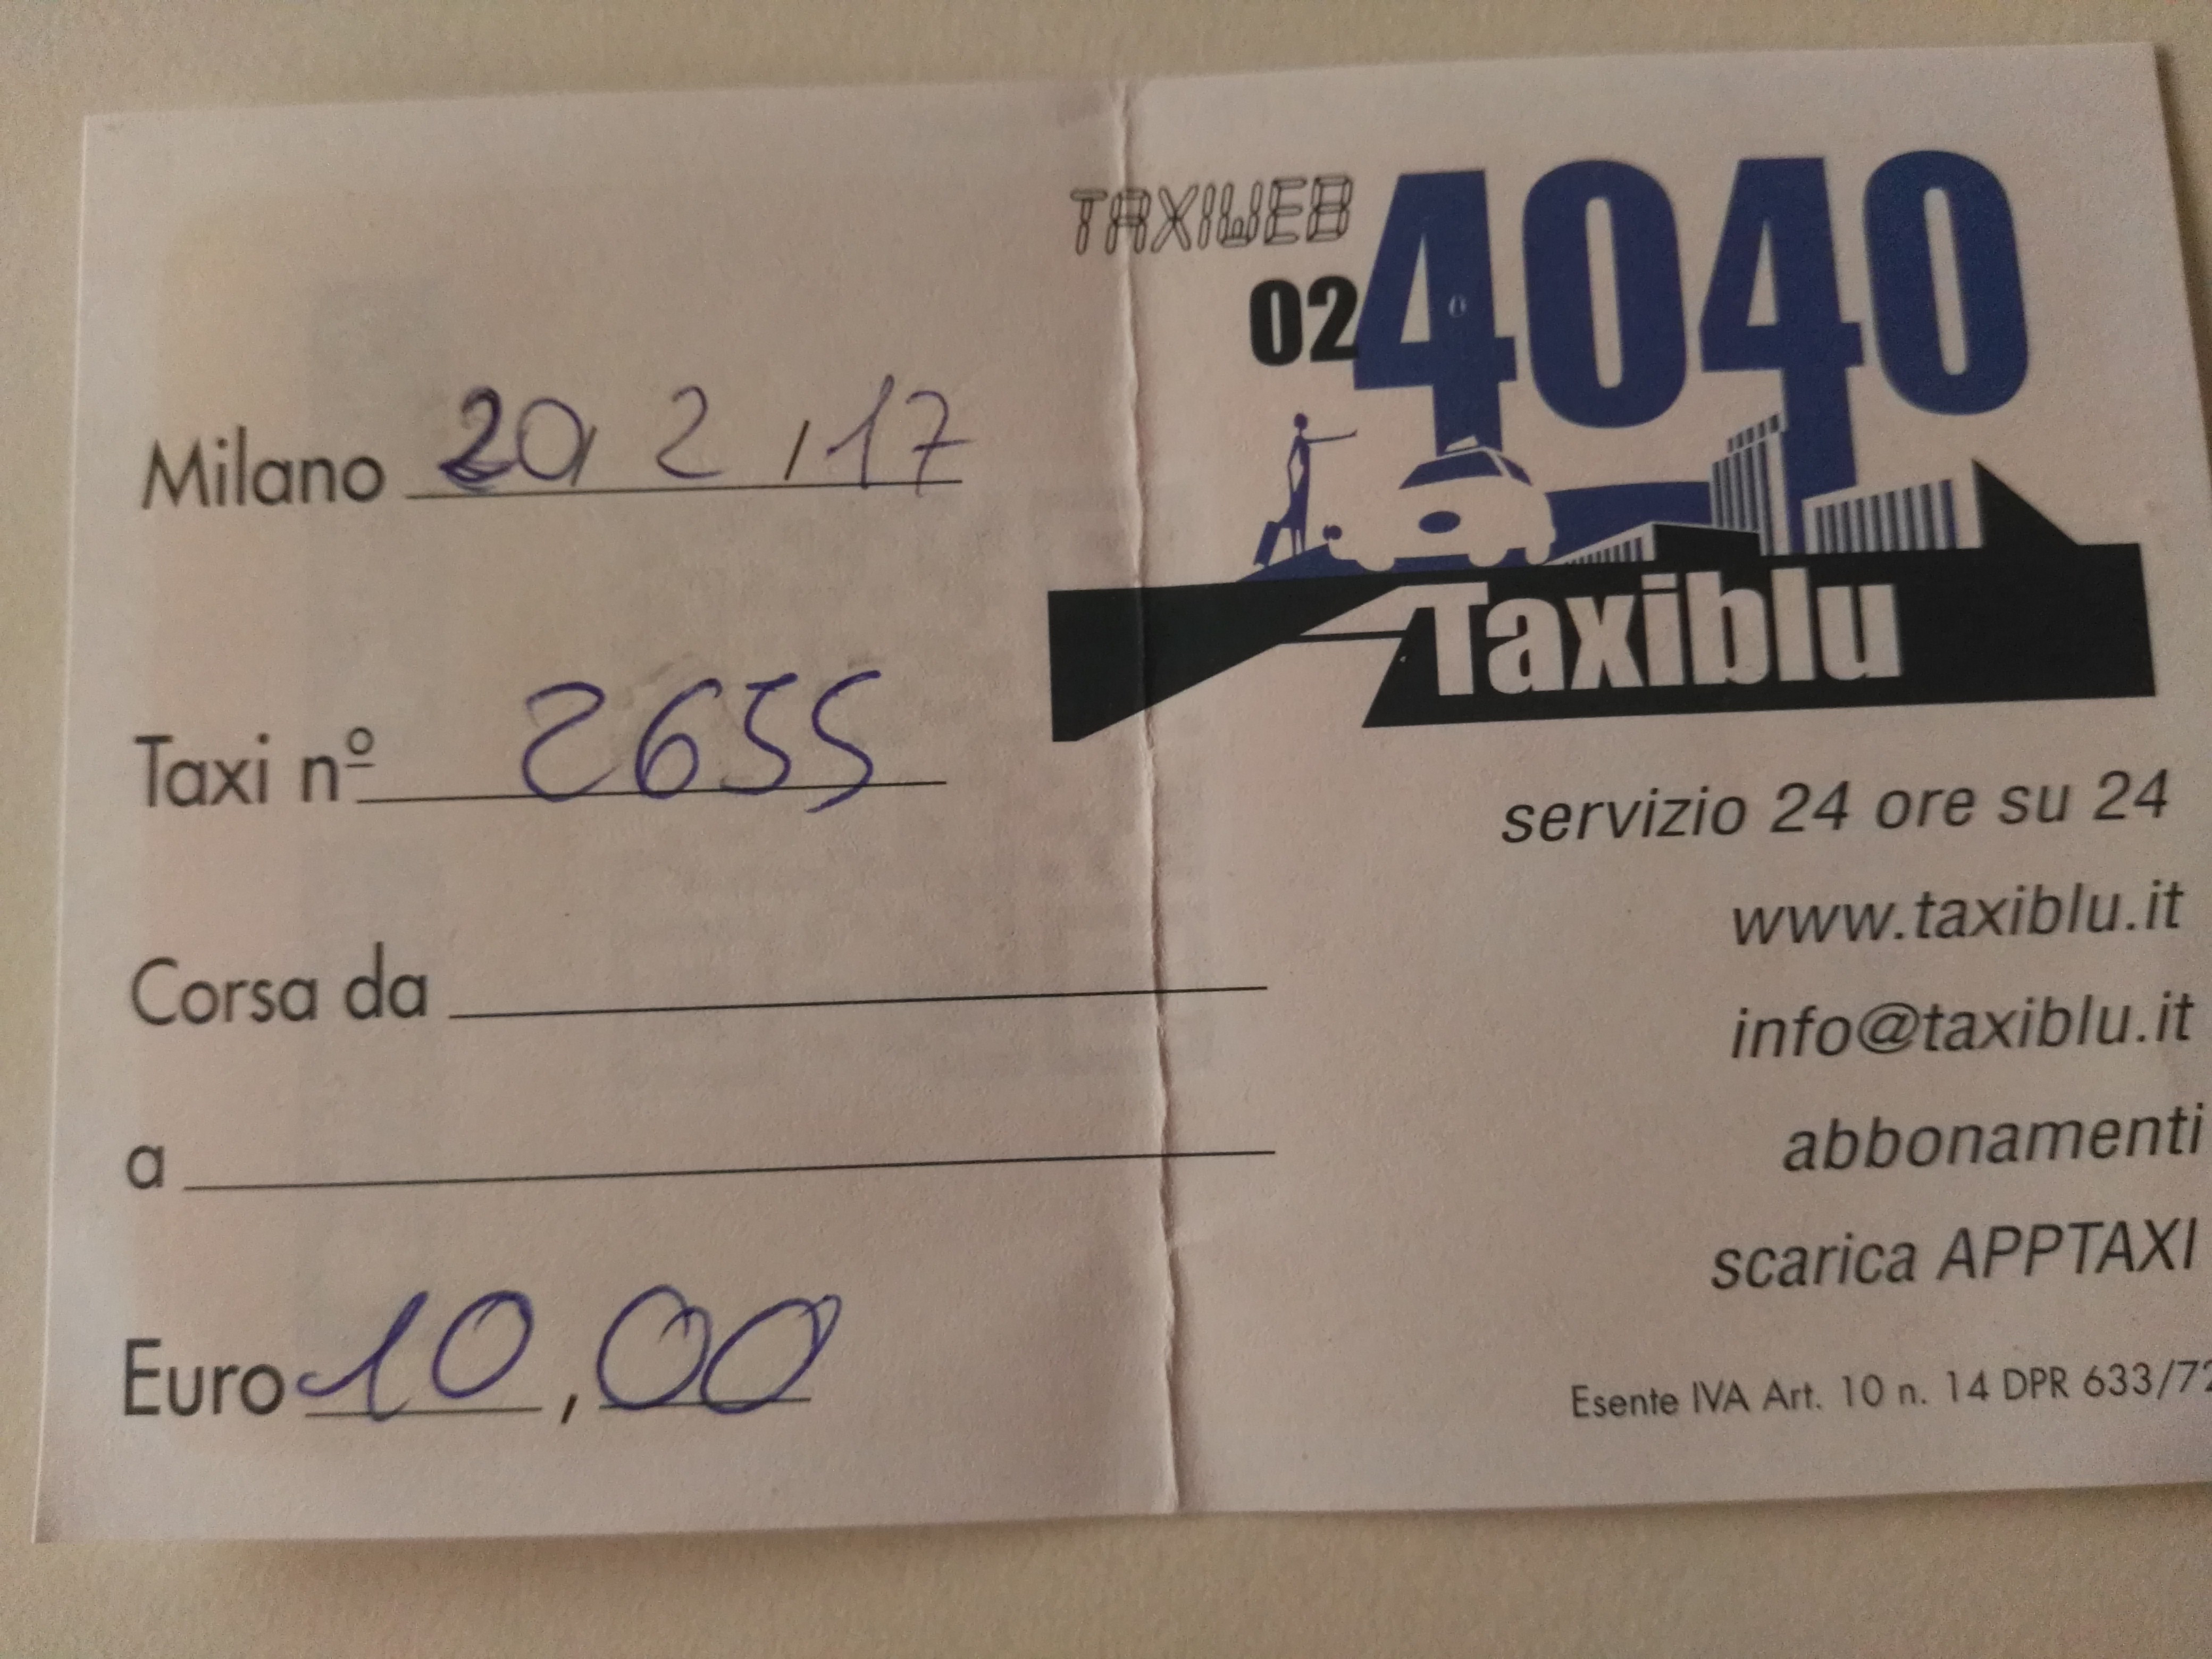 Milano 20/ 2 / 17
Taxi nº 2655
Corsa da
a
Euro 10,00
TAXIWEB
02 4040
Taxiblu
servizio 24 ore su 24
www.taxiblu.it
info@taxiblu.it
abbonamenti
scarica APPTAXI
Esente IVA Art. 10 n. 14 DPR 633/72